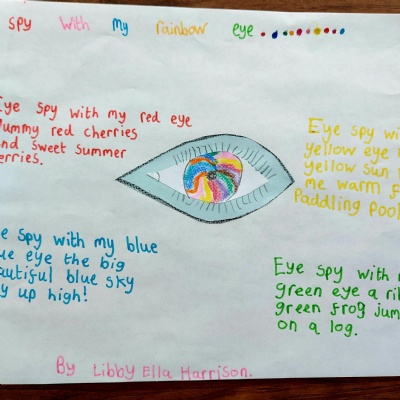 spy with my rainbow eye
Eye spy with my red eye
yummy red cherries
and sweet summer
berries.
Eye spy wi
yellow eye
yellow sun
me warm
Paddling pool
spy with my blue
eye the big
beautiful blue sky
up high!
Eye spy with
green eye a
green frog jum
on a log.
By Libby Ella Harrison.